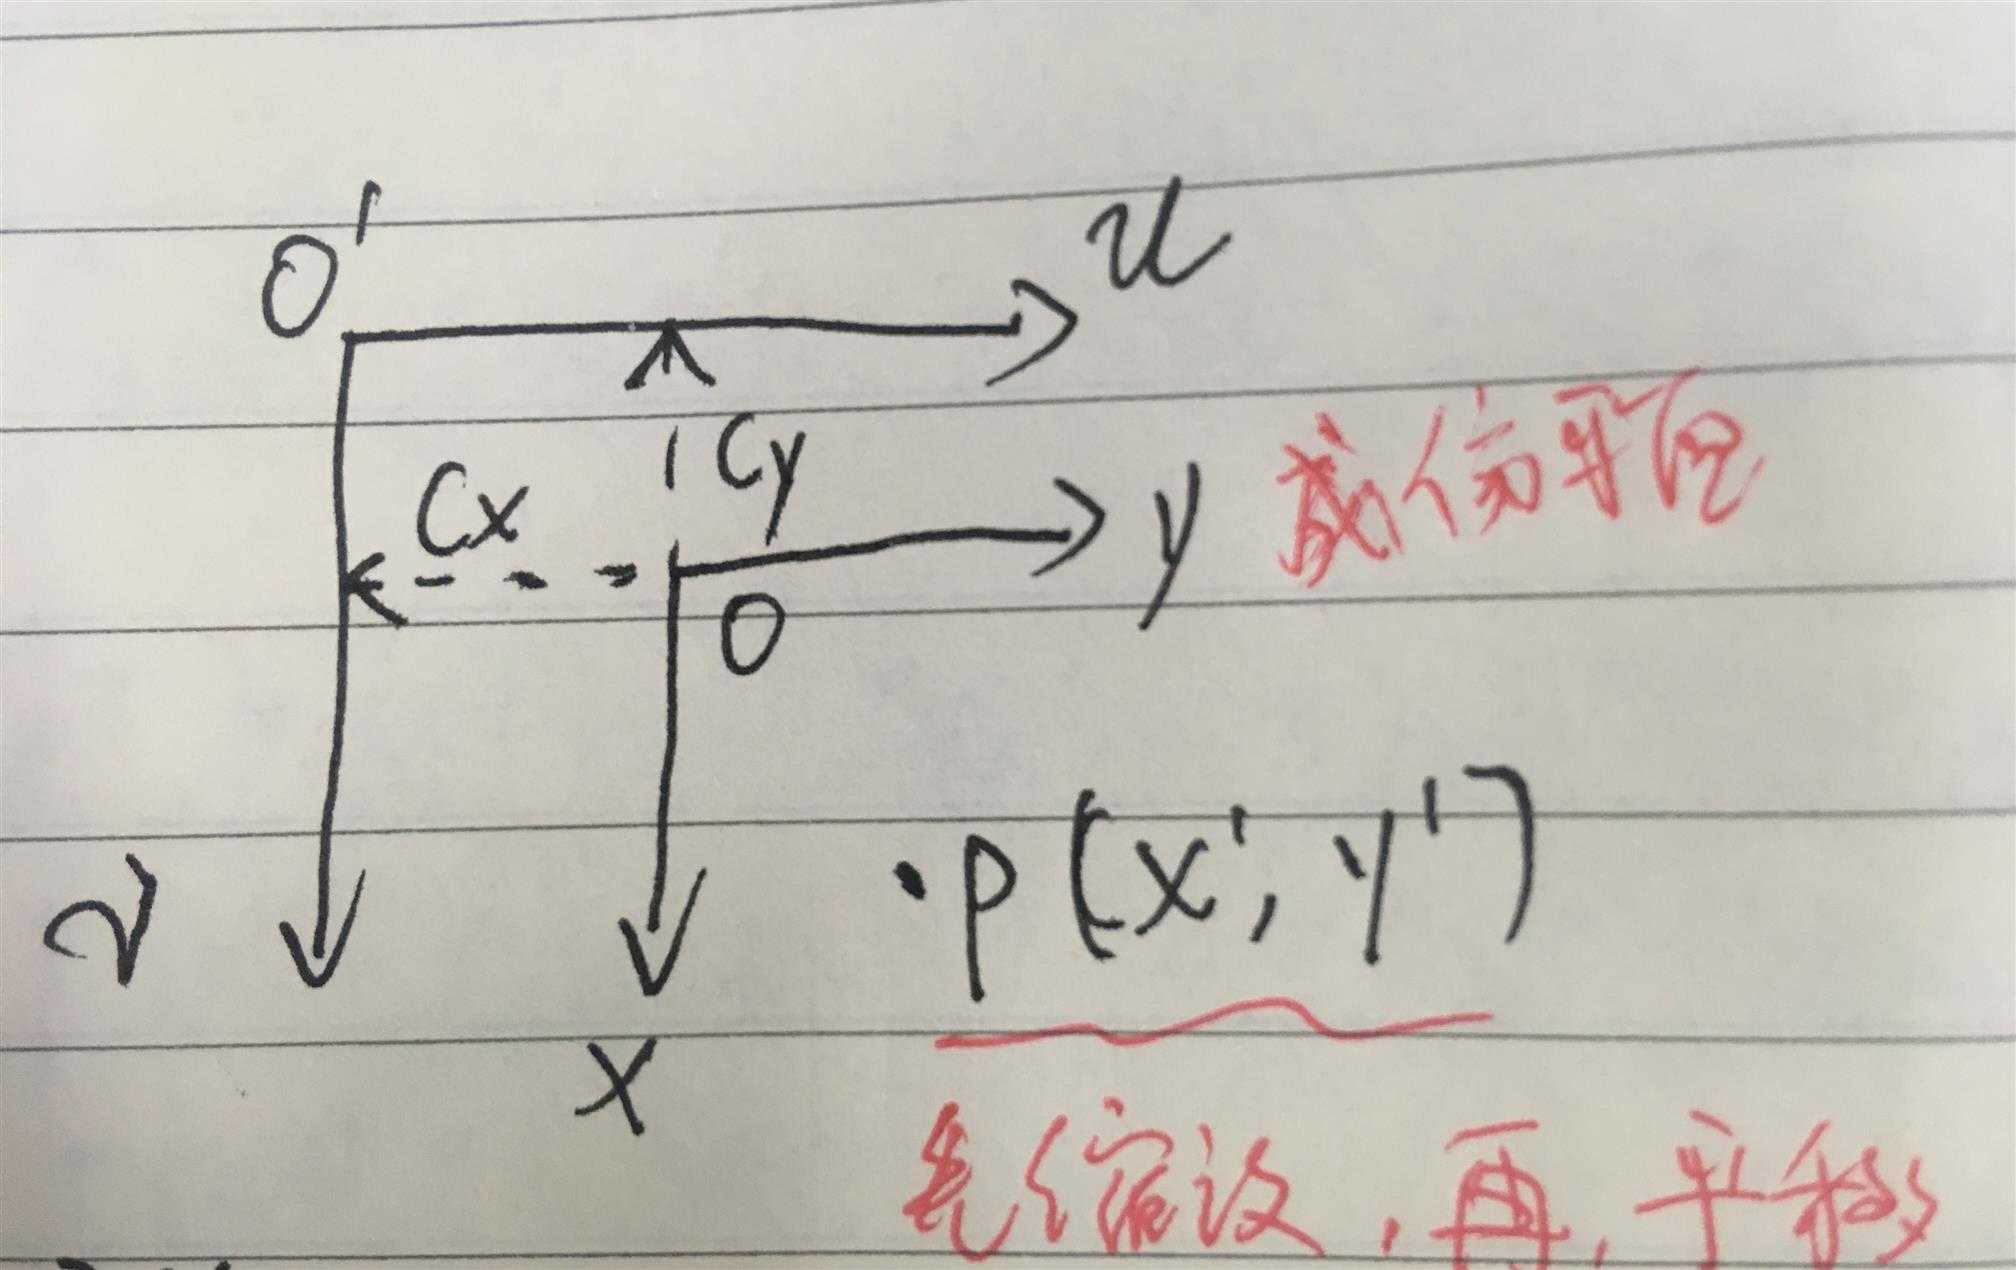 O'
u
Cy
Cx
y
成像平面
O
v
·P(x', y')
x
先缩放,再,平移